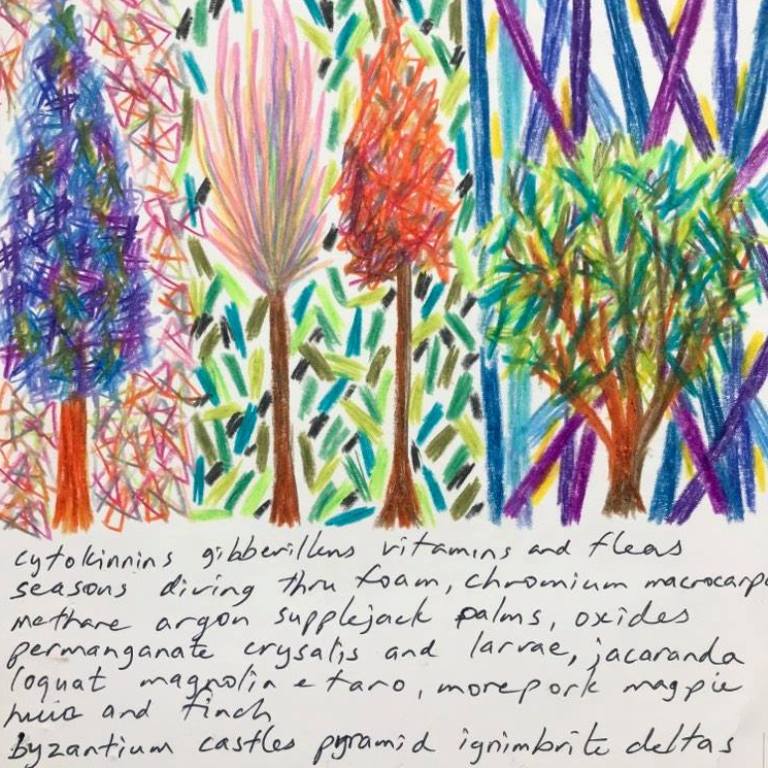 cytokinnins gibberillens vitamins and fleas
seasons diving thru foam, chromium macrocarpa
methane argon supplejack palms, oxides
permanganate crysalis and larvae, jacaranda
loquat magnolia e taro, morepork magpie
huia and finch
byzantium castles pyramid ignimbrite deltas